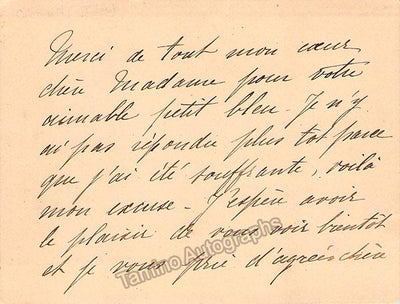 Merci de tout mon cœur
chère Madame pour votre
aimable petit bleu. Je n'y
ai pas répondu plus tôt parce
que j'ai été souffrante, voilà
mon excuse. J'espère avoir
le plaisir de vous voir bientôt
et je vous prie d'agréer chère
Tamino Autographs